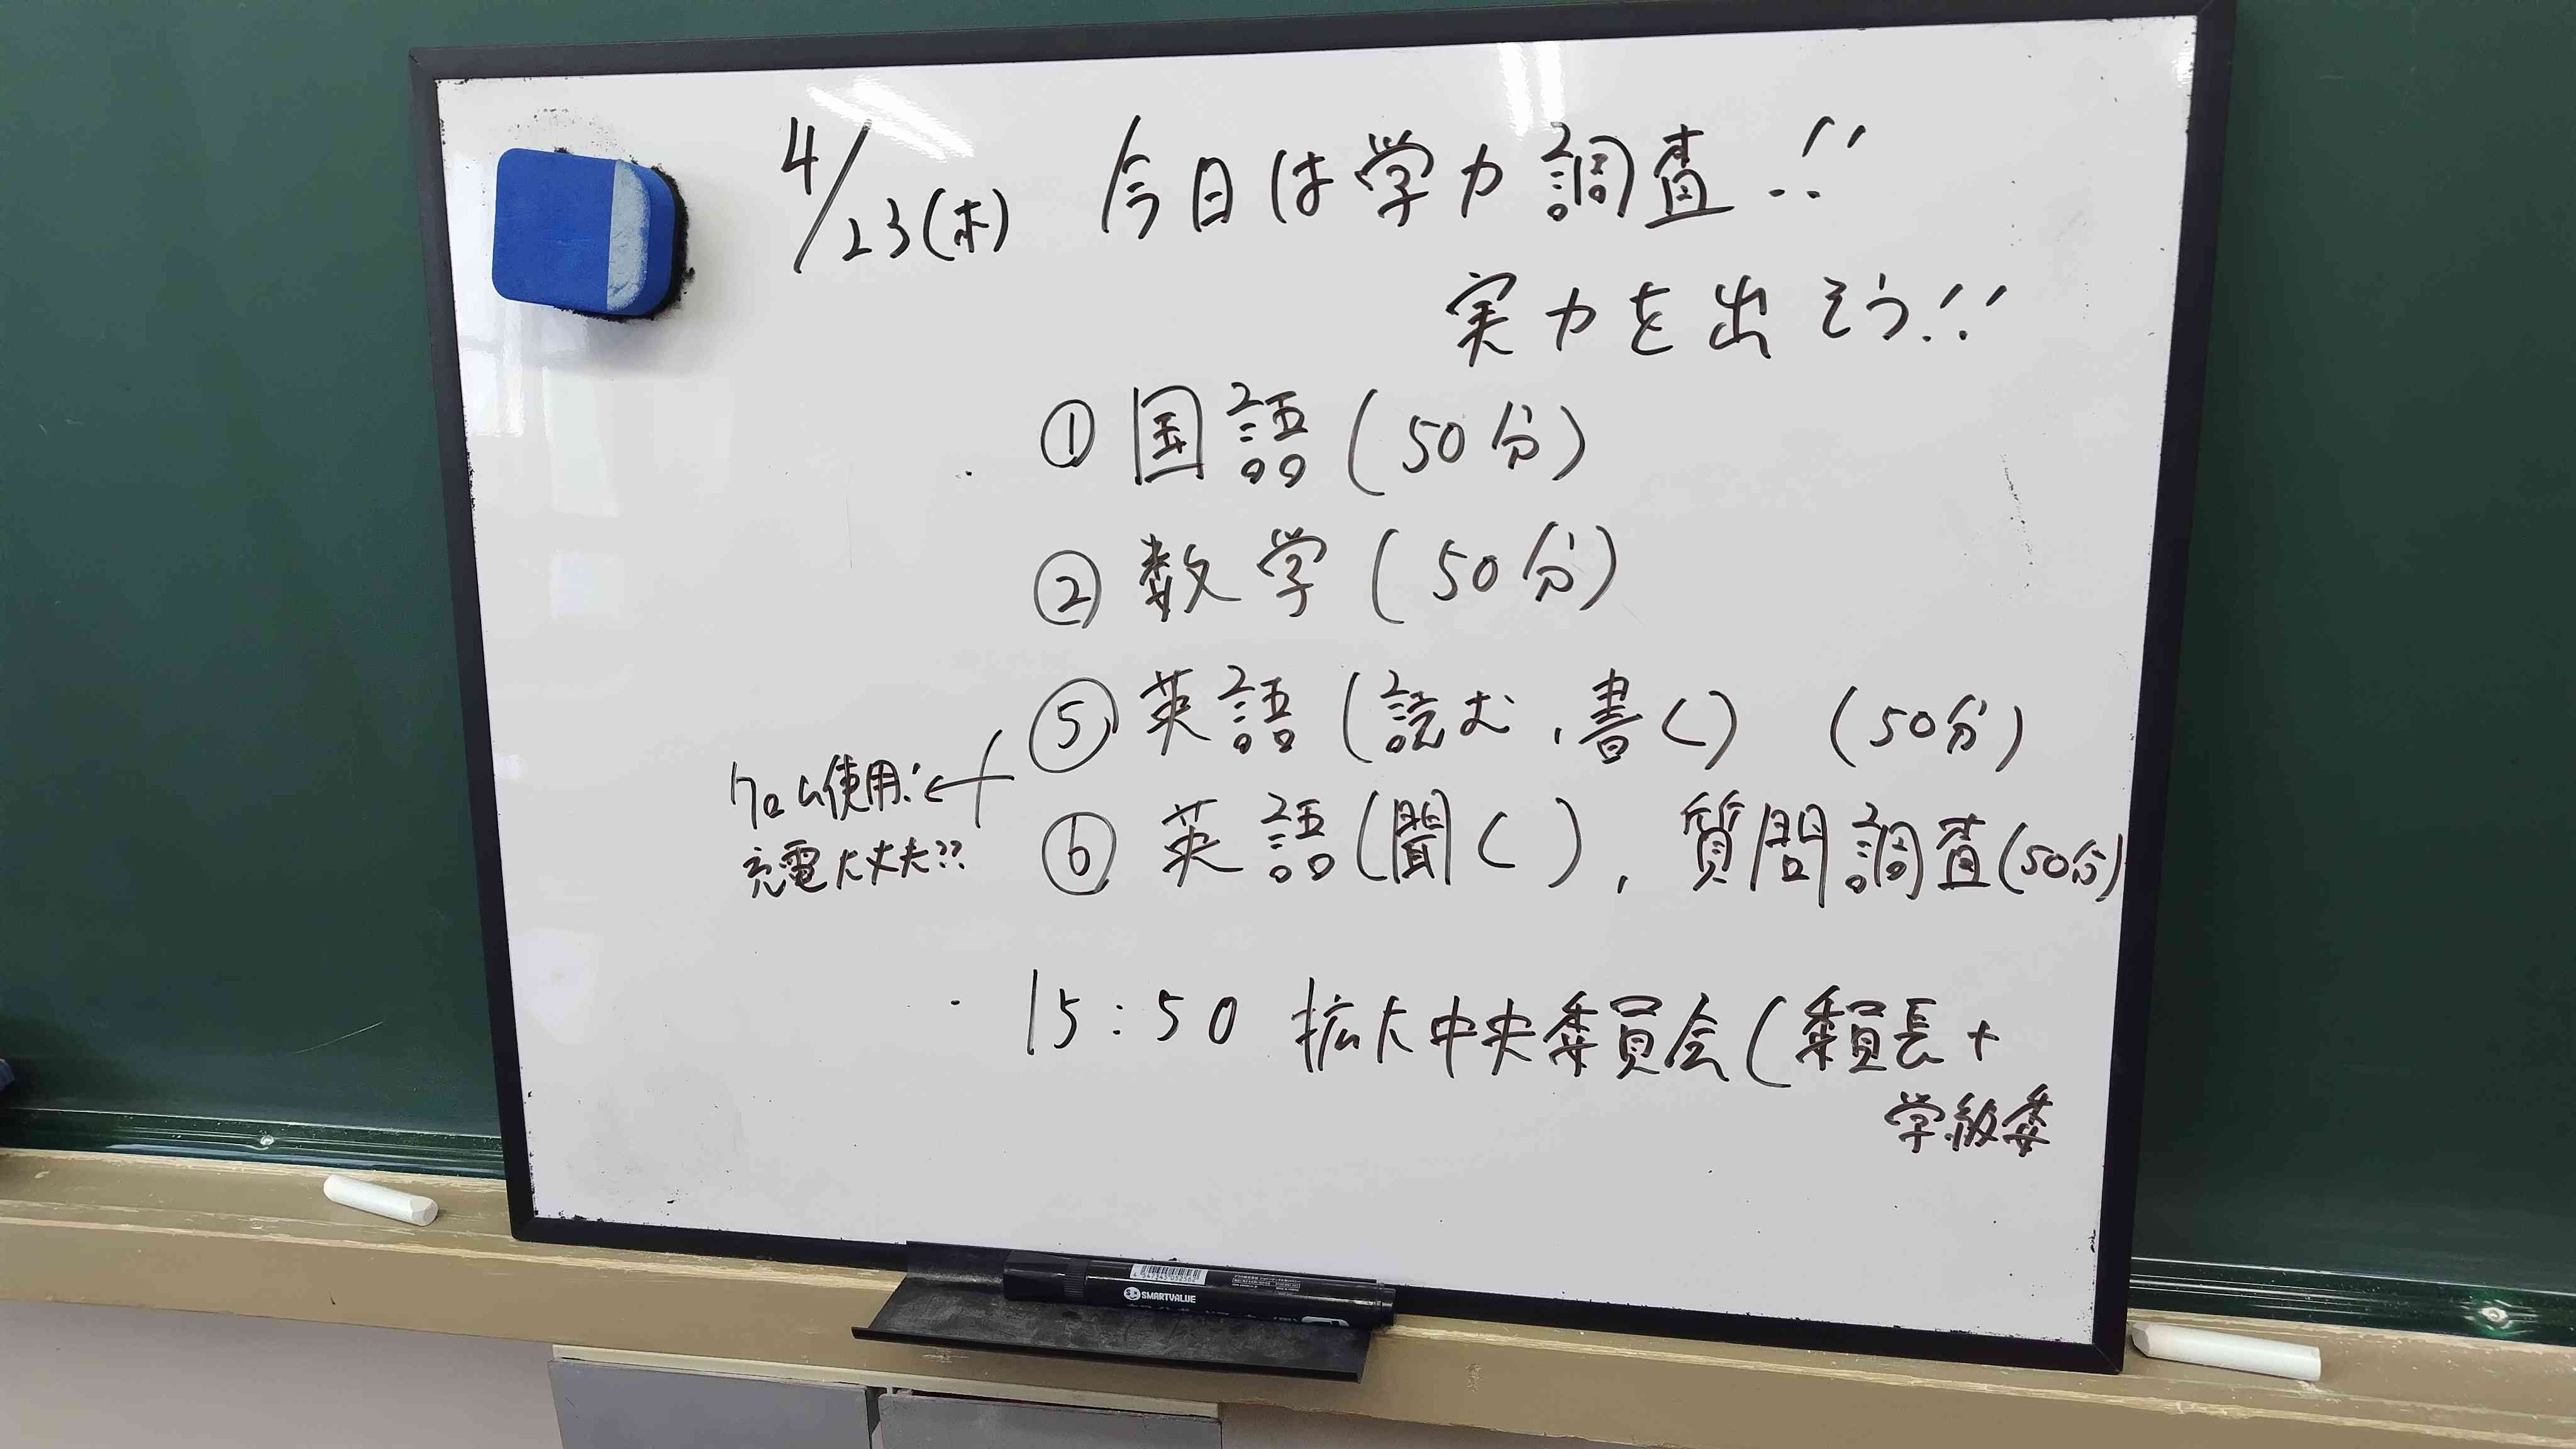 4/23(木) 今日は学力調査!!
実力を出そう!!
① 国語(50分)
② 数学(50分)
⑤ 英語(読む,書く) (50分)
クロム使用!
充電大丈夫??
⑥ 英語(聞く), 質問調査(50分)
15:50 拡大中央委員会(委員長+
学級委
SMARTVALUE